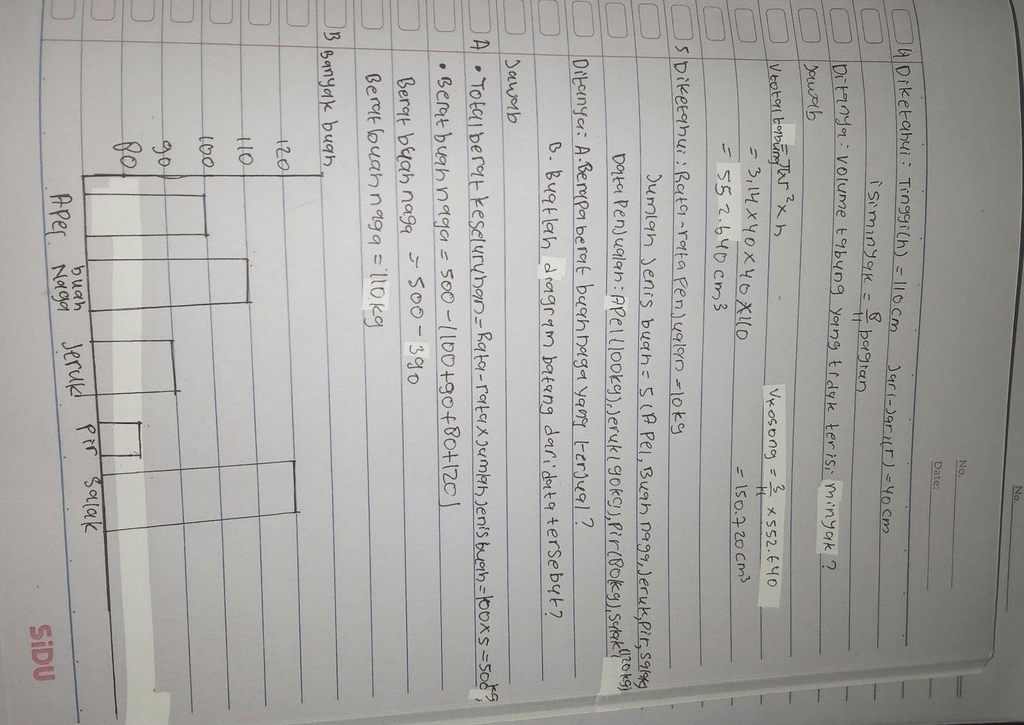 No.
No.
Date:
4 Diketahui: Tinggi(h) = 110cm Jari-Jari(r) = 40 cm
isiminyak = 8/11 bagian
Ditanya: Volume tabung yang tidak terisi minyak?
Jawab
Vtotal tabung = πr² x h
= 3,14 x 40 x 40 x 110
= 552.640 cm³
Vkosong = 3/11 x 552.640
= 150.720 cm³
5 Diketahui: Rata-rata Penjualan = 10 kg
Jumlah Jenis buah = 5 (Apel, Buah naga, Jeruk, pir, salak)
Data Penjualan: Apel (100kg), Jeruk (90kg), Pir (80kg), salak (120kg)
Ditanya: A. Berapa berat buah naga yang terjual?
B. Buatlah diagram batang dari data tersebut?
Jawab
A • Total berat keseluruhan = Rata-rata x Jumlah Jenis buah = 100 x 5 = 500kg
• Berat buah naga = 500 - (100+90+80+120)
Berat buah naga = 500 - 390
Berat buah naga = 110 kg
B Banyak buah
120
110
100
90
80
Apel buah Naga Jeruk Pir Salak
SiDU